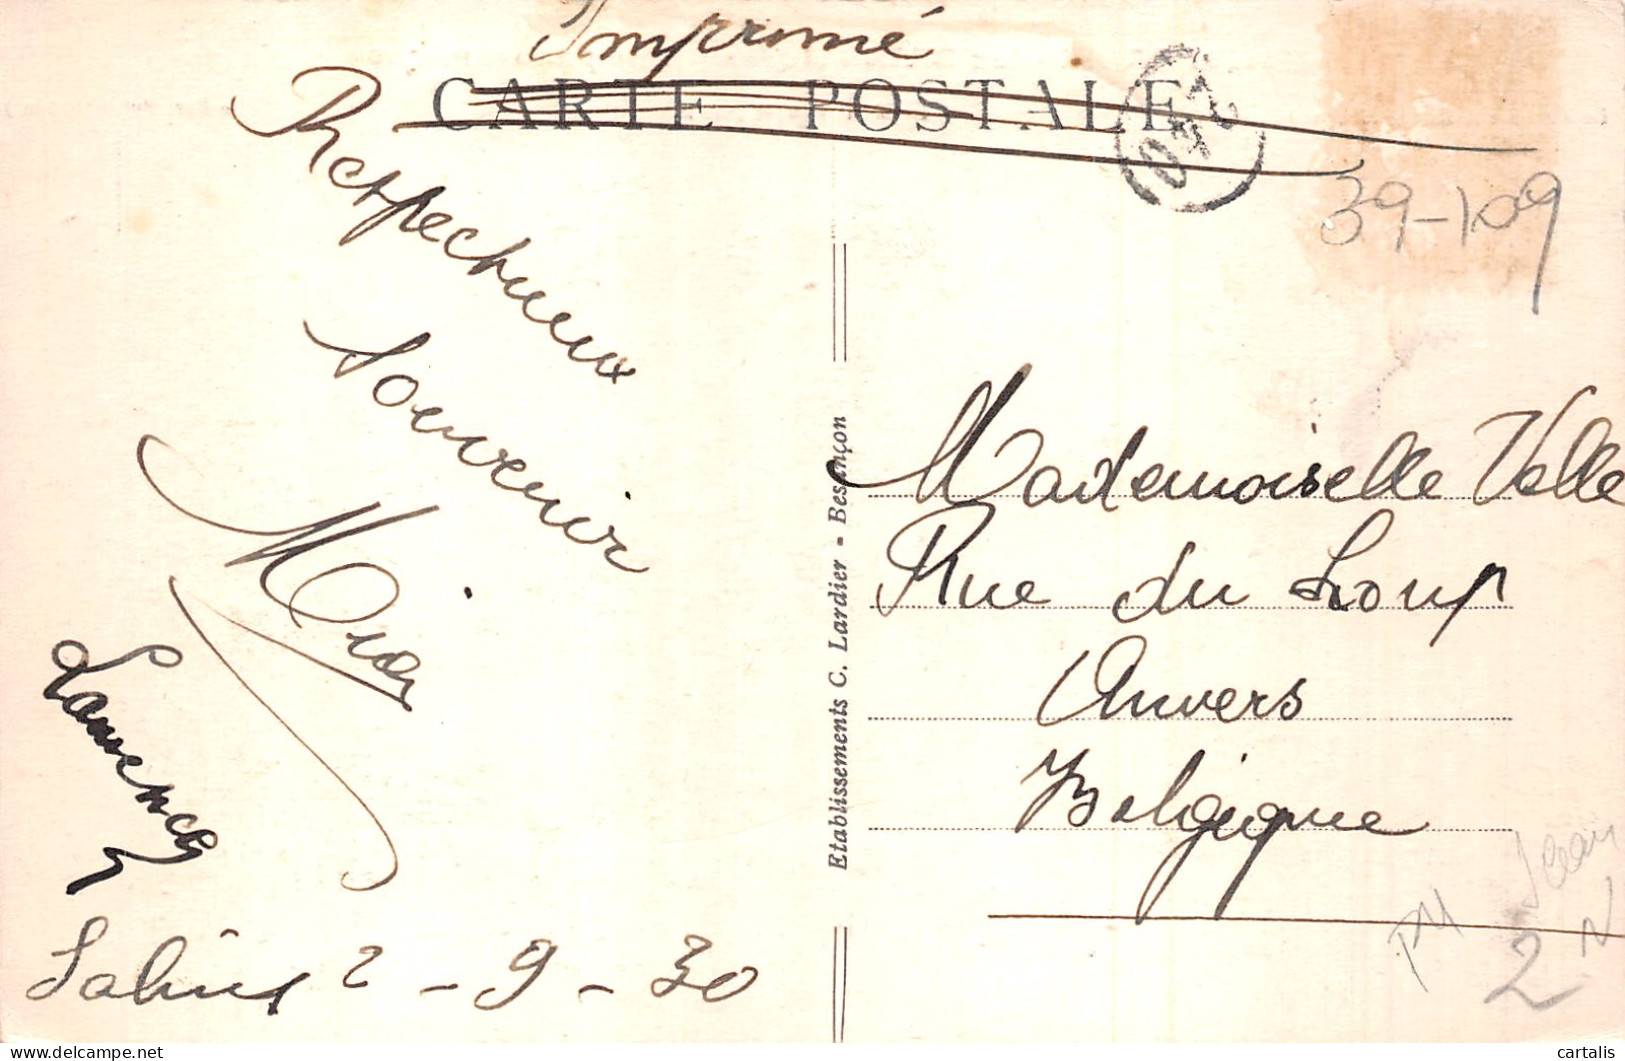 Imprimé
CARTE POSTALE
240
39-109
Respectueux
Souvenir
Etablissements C. Lardier - Besançon
Mademoiselle Velle
Rue du Loup
Anvers
Belgique
Salins 2 - 9 - 30
Jean
PM
2
N
cartalis